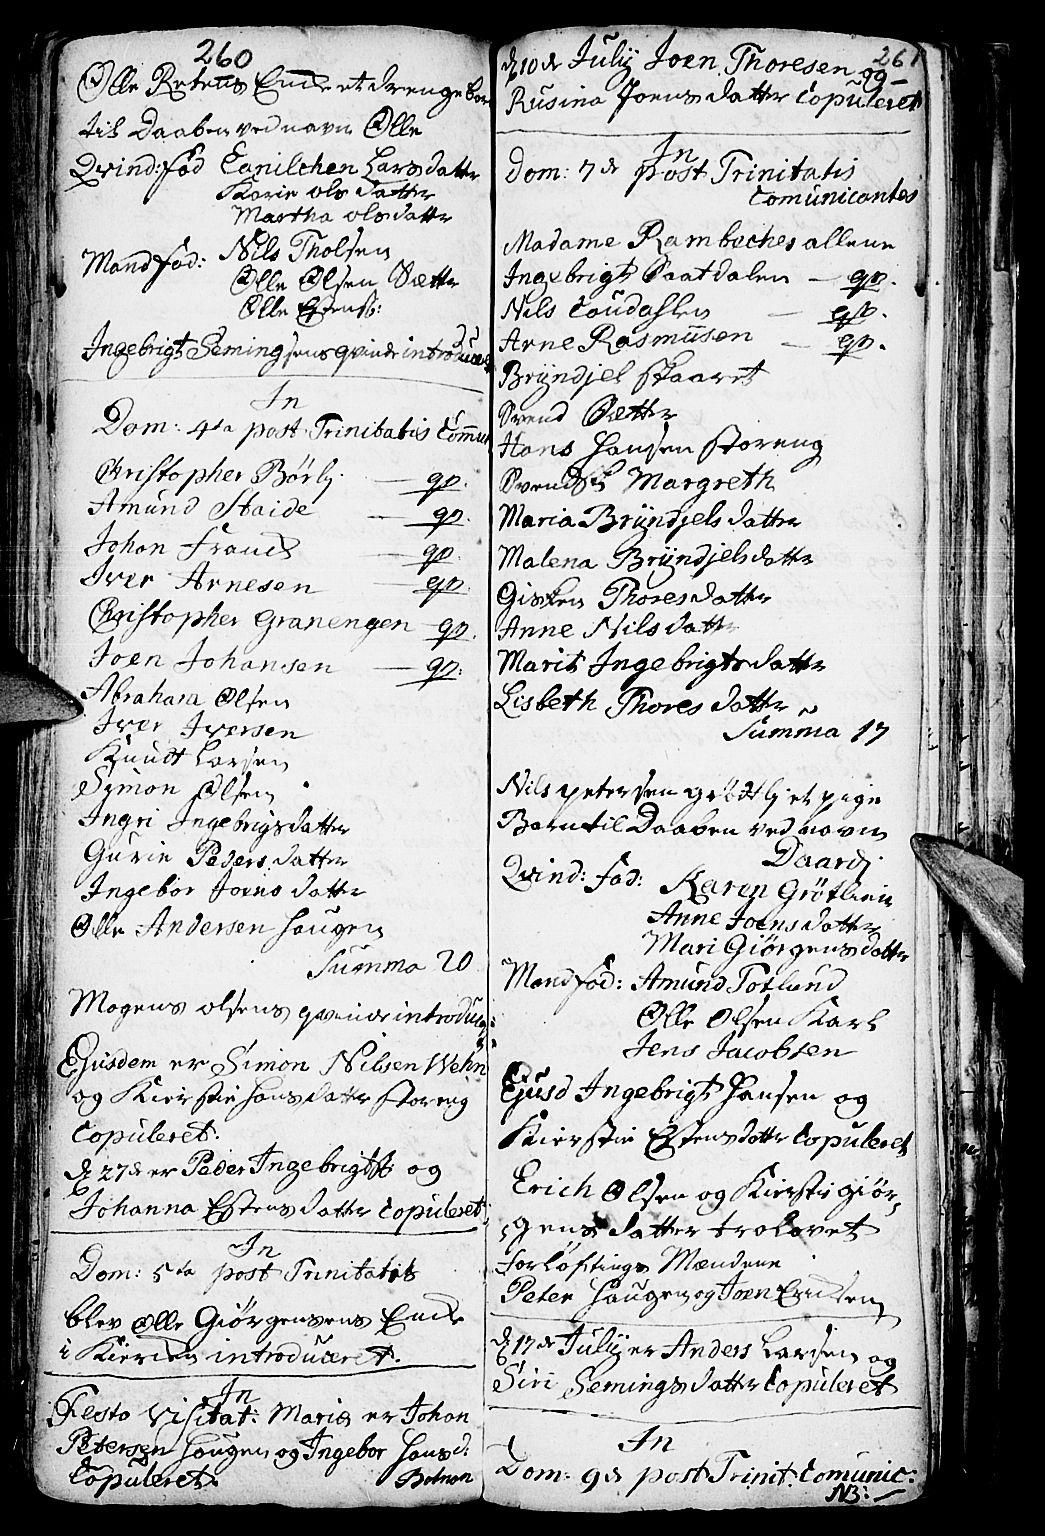 260
Olle Retens Ende et drengebar
til Daaben ved navn Olle
Qvind: fod Eanilchen Larsdatter
Karie ols datter
Martha olsdatter
Mandfad: Nils Tholsen
Olle Olsen Sætter
Olle
Ingebrigt Semingsens qvinde introduceret
In
Dom: 4ta post Trinitatis Comun
Christopher Börli — qp.
Amund Haide — qp.
Johan Frauch — qp.
Iver Arnesen — qp.
Christopher Granengen qp.
Joen Johansen — qp.
Abraham Olsen
Iver Iversen
Knudt Larsen
Symon Olsen
Ingri Ingebrigsdatter
Gurie Pedersdatter
Ingebor Joens datter
Olle Andersen Haugen
Summa 20
Mogens olsens qvinde introduc
Ejusdem er Simon Nilsen Wehn
og Kierstie Hansdatter Storeng
Copuleret.
d 27de er Peder Ingebrigts og
Johanna Estensdatter Copuleret
In
Dom: 5ta post Trinitatis
blev Olle Giörgensens Ende
i Kierken introduceret.
In
Festo Visitat: Mariæ er Johan
Petersen Haugen og Ingebor Hansd:
Copuleret. Botnen
261
d 10de July Joen Thoresen og
Rusina Joensdatter Copuleret
In
Dom: 7de post Trinitatis
Comunicantes
Madame Rambeches allene
Ingebrigt Saatdalen — qp.
Nils — qp.
Arne Rasmusen — qp.
Bryndjel Skaaret
Svend Sætter
Hans Hansen Storeng
Margreth
Maria Bryndjelsdatter
Malena Bryndjelsdatter
Gisken Thoresdatter
Anne Nilsdatter
Marit Ingebrigtsdatter
Lisbeth Thoresdatter
Summa 17
Nils petersen grödtli et pige
Barn til Daaben ved navn
Daardi
Qvind: fad: Karen Grötlien
Anne Joensdatter
Mari Giörgensdatter
Mandfad: Amund Totlund
Olle Olsen Karl
Jens Jacobsen
Ejusd Ingebrigt Hansen og
Kierstie Estensdatter Copuleret
Erich Olsen og Kiersti Giör-
gens datter trolovet
forlöftings Mændene
Peter Haugen og Joen Endsen
d 17de July er Anders Larsen og
Siri Semingsdatter Copuleret
In
Dom: 9de post Trinit: Comunic:
NB: —